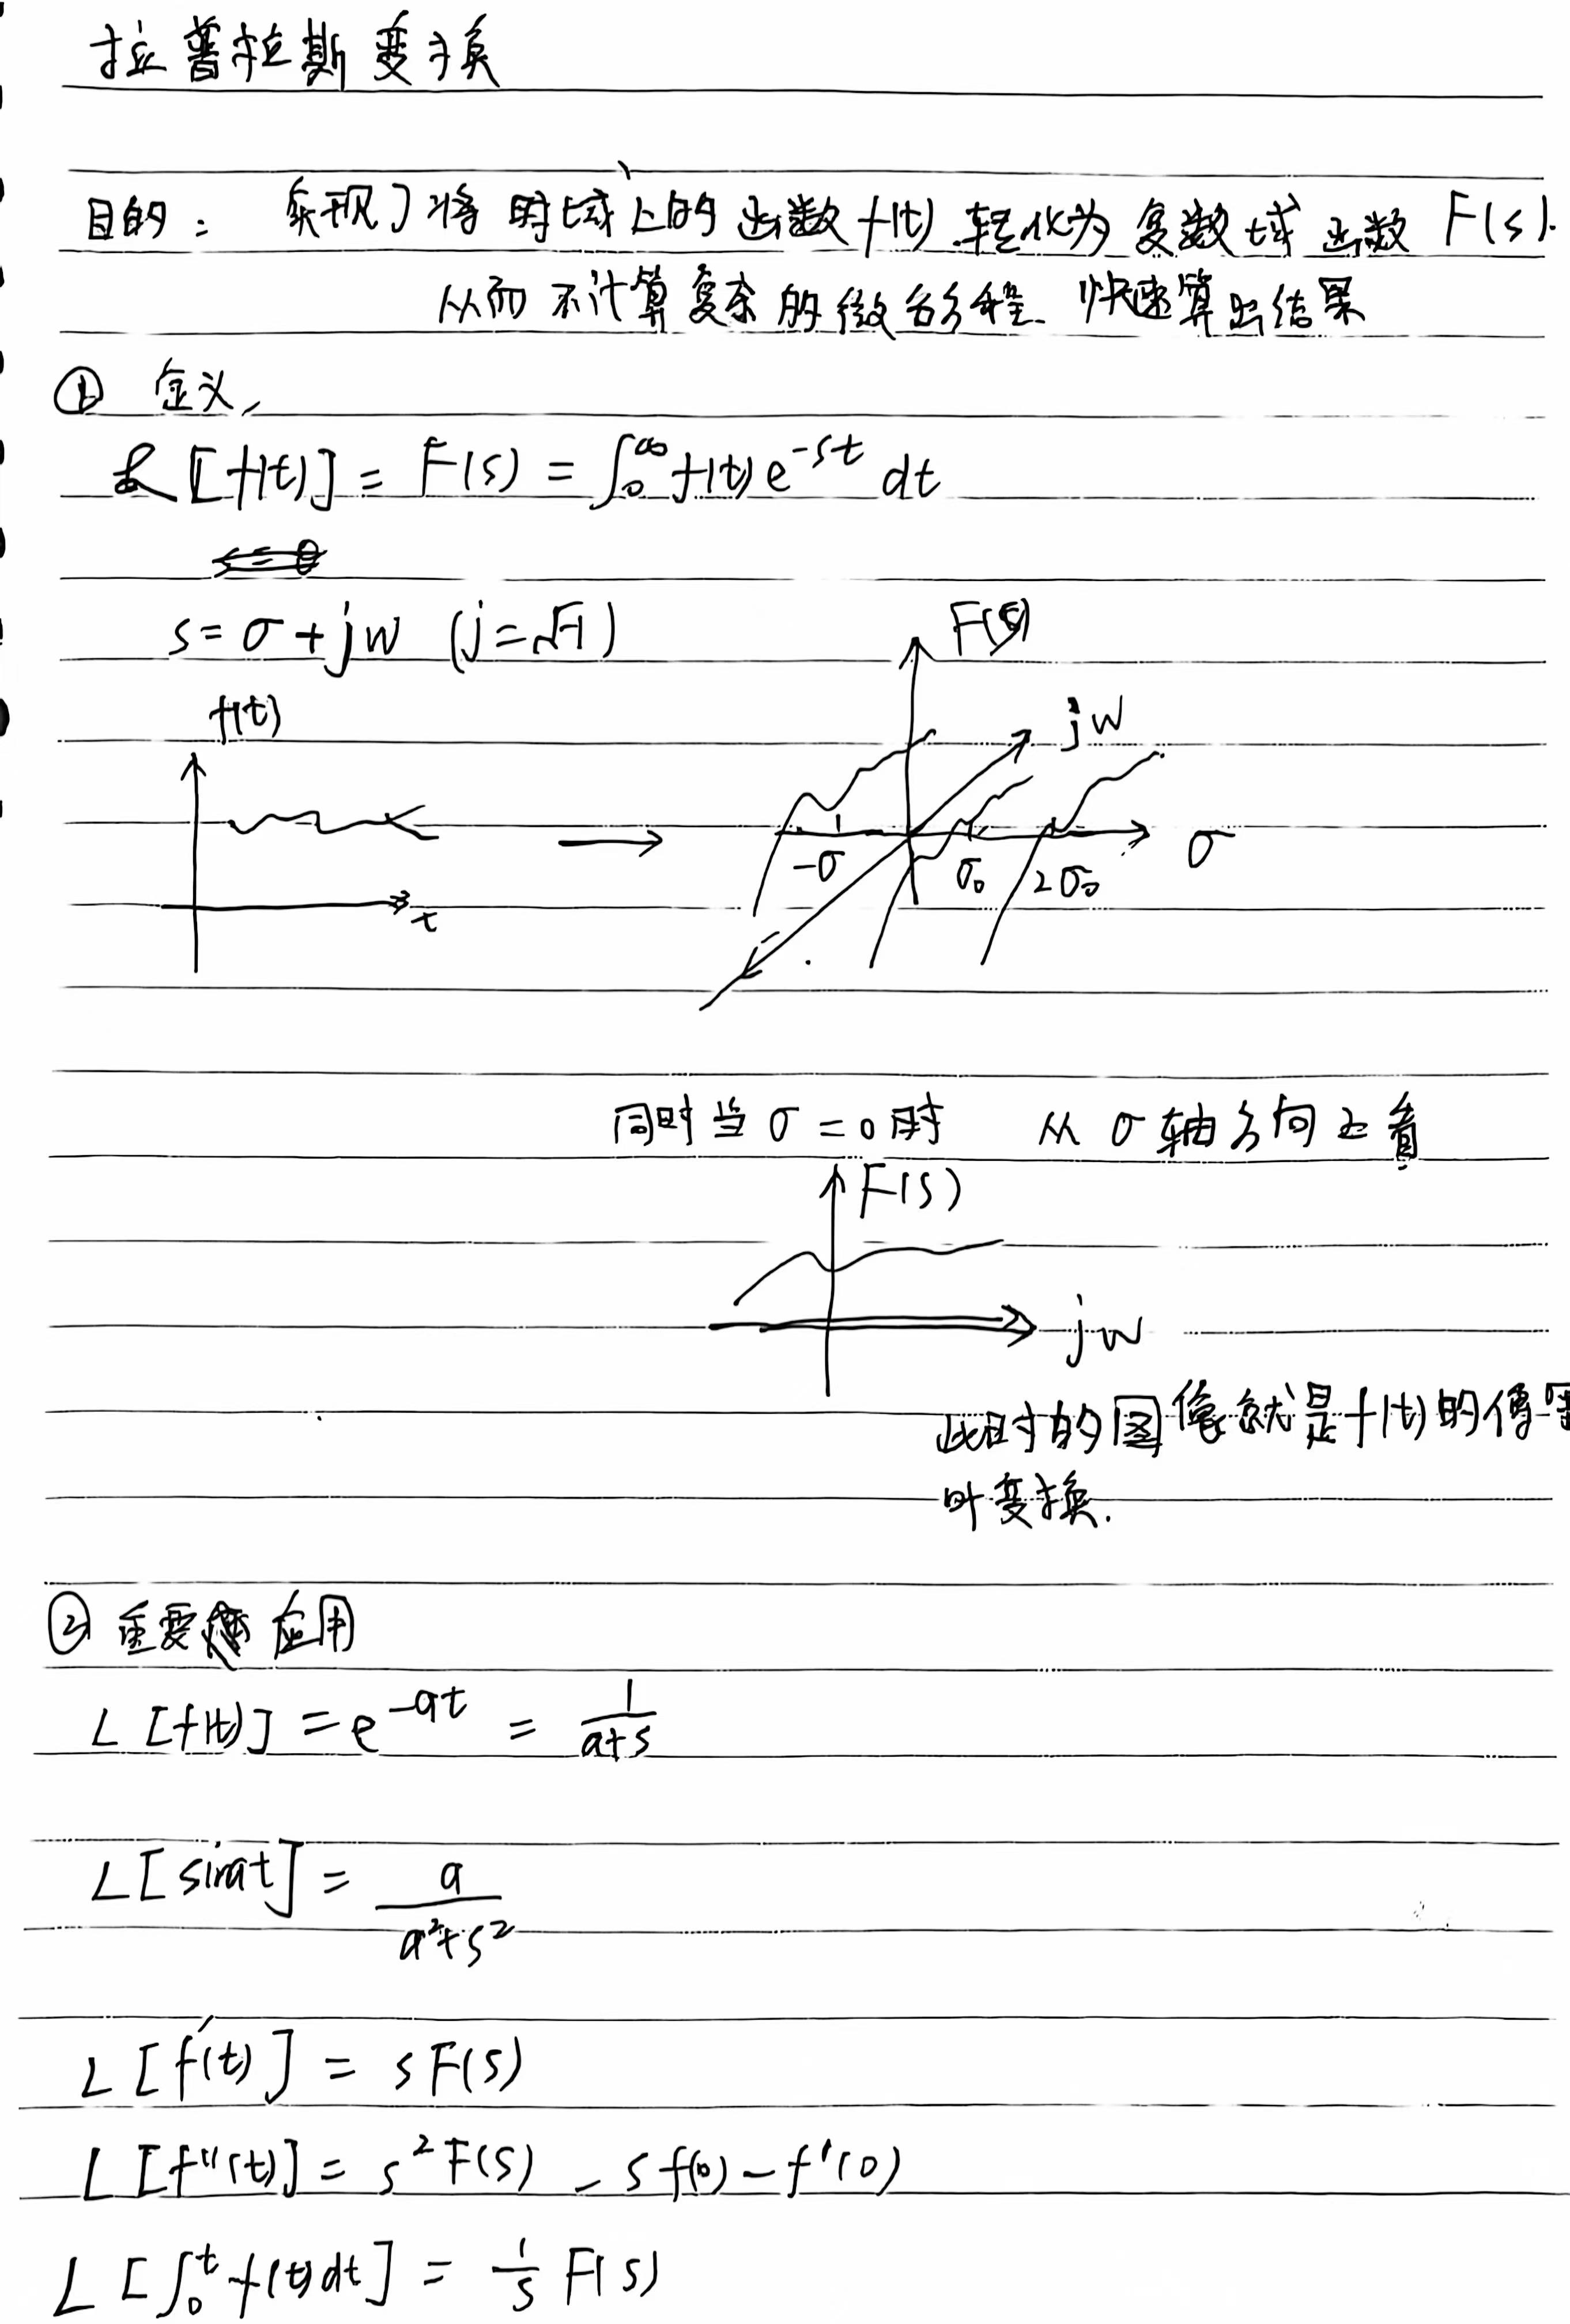 拉普拉斯变换
目的: 实现了将时域上的函数f(t)转化为复数域函数F(s).
从而不计算复杂的微分方程 快速算出结果
① 定义,
ℒ[f(t)] = F(s) = ∫₀^∞ f(t) e^{-st} dt
s = σ + jw (j = √-1)
F(s)
f(t)
jw
-σ σ₀ 2σ₀ σ
t
同时当 σ = 0 时 从 σ 轴方向上看
F(s)
jw
此时的图像就是f(t)的傅里
叶变换.
② 重要 应用
L[f(t)] = e^{-at} = 1/(a+s)
L[sinat] = a/(a²+s²)
L[f'(t)] = sF(s)
L[f''(t)] = s²F(s) - sf(0) - f'(0)
L[∫₀^t f(t)dt] = 1/s F(s)